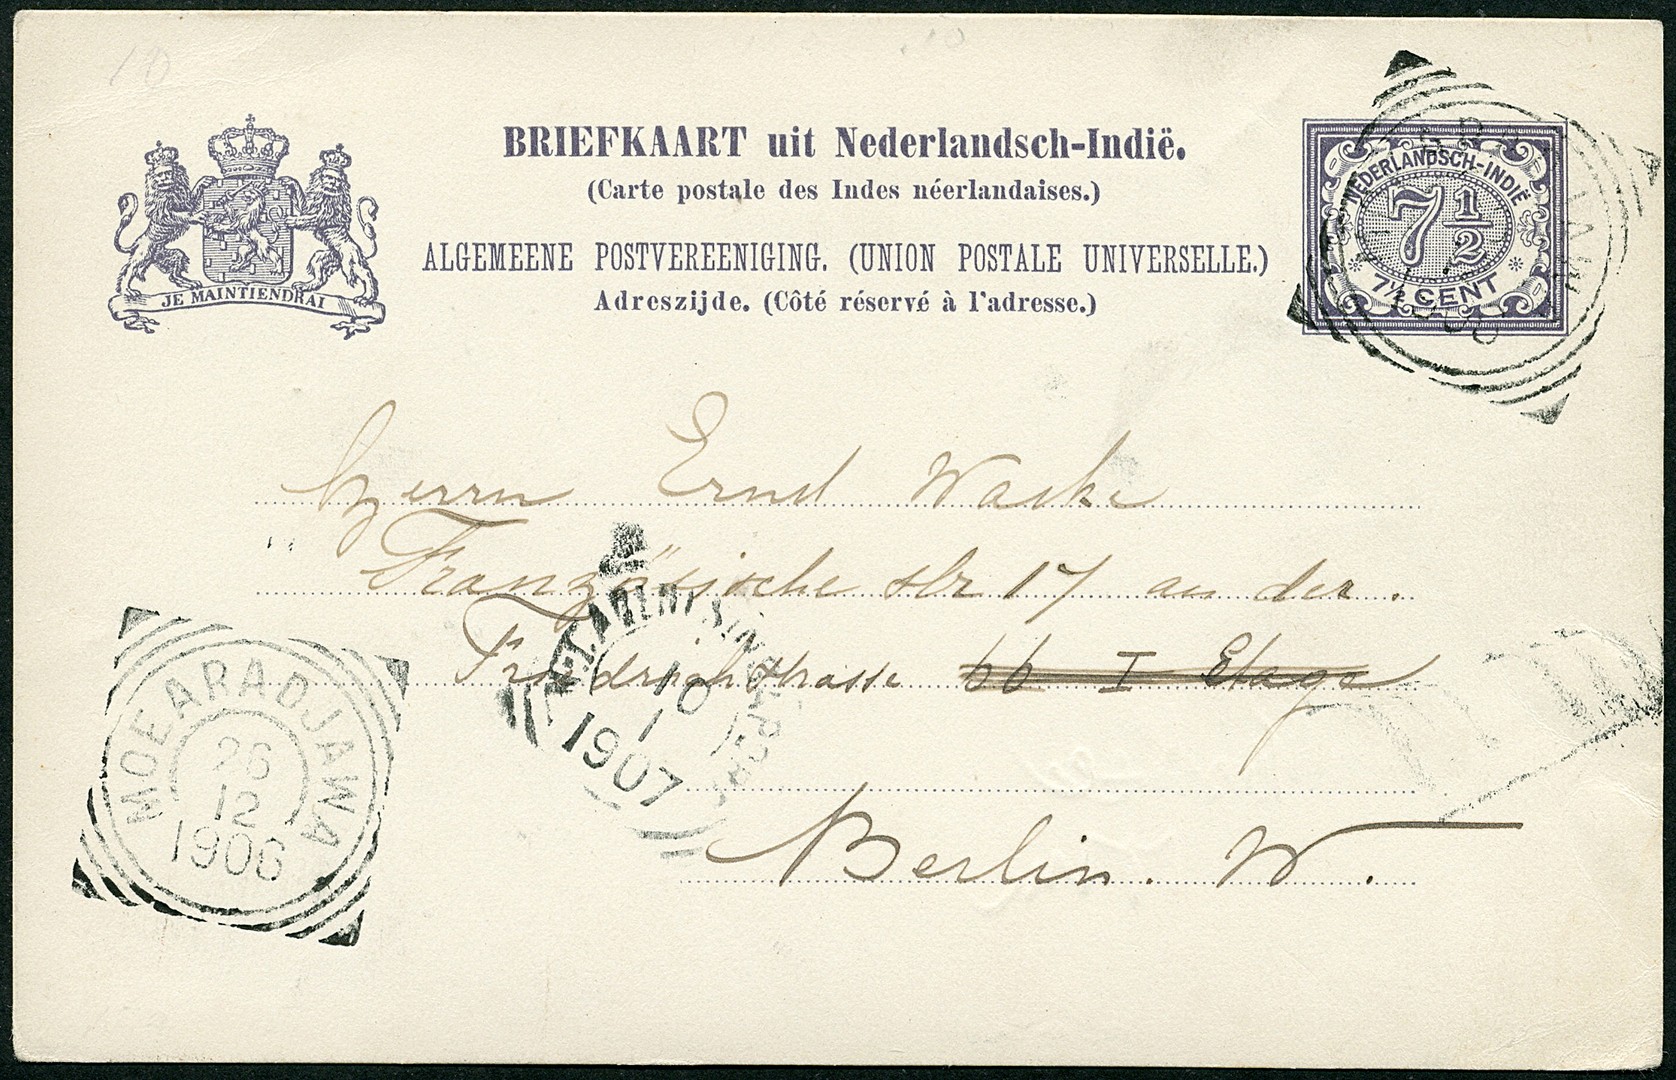 10
BRIEFKAART uit Nederlandsch-Indië.
(Carte postale des Indes néerlandaises.)
ALGEMEENE POSTVEREENIGING. (UNION POSTALE UNIVERSELLE.)
Adreszijde. (Côté réservé à l'adresse.)
JE MAINTIENDRAI
NEDERLANDSCH-INDIË
7 1/2
7½ CENT
Herrn Ernst Waske
Französische str 17 an der
Friedrichstrasse 66 I Etage
Berlin. W.
MOEARADJAWA
26
12
1906
10
1
1907